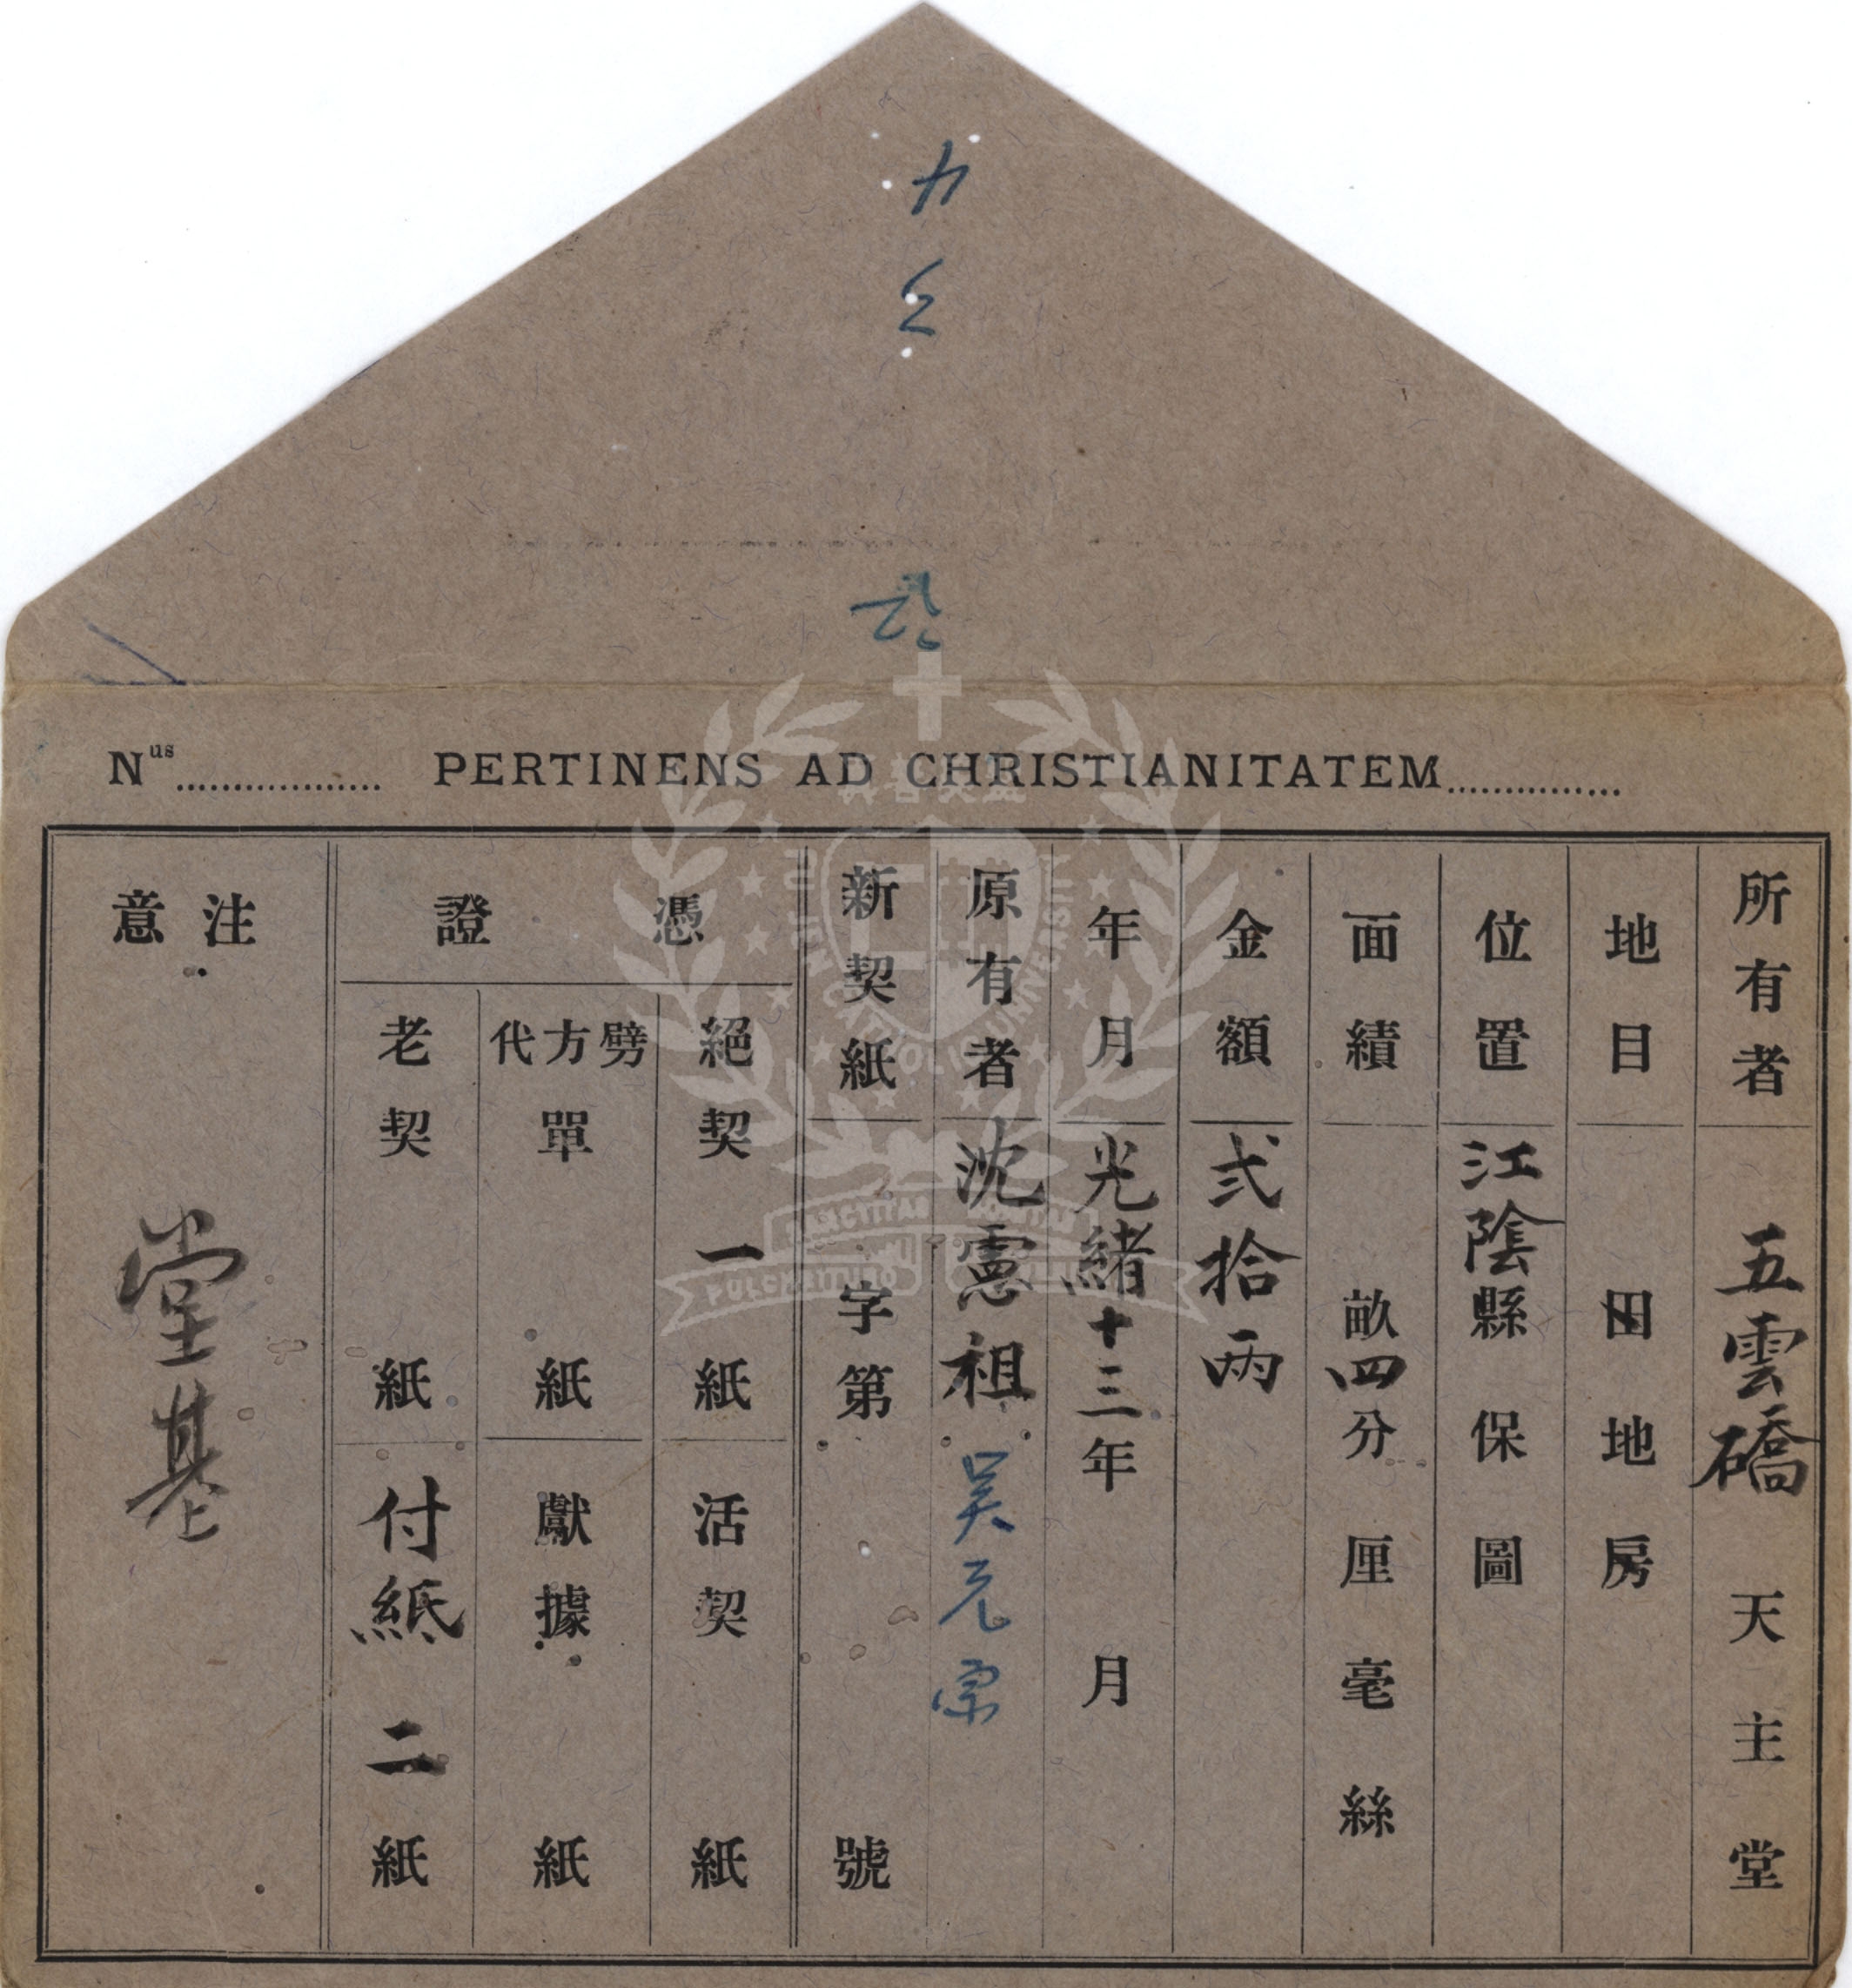 Nus.................. PERTINENS AD CHRISTIANITATEM...............
所有者 五雲礄 天主堂
地目 田地房
位置 江陰縣 保 圖
面積 畝四分厘毫絲
金額 弍拾兩
年月 光緒十三年 月
原有者 沈憲祖 吴元宗
新契紙 字第 號
憑證
絕契 一紙 活契 紙
劈方代單 紙 獻據 紙
老契 紙 付紙 二紙
注意 堂基